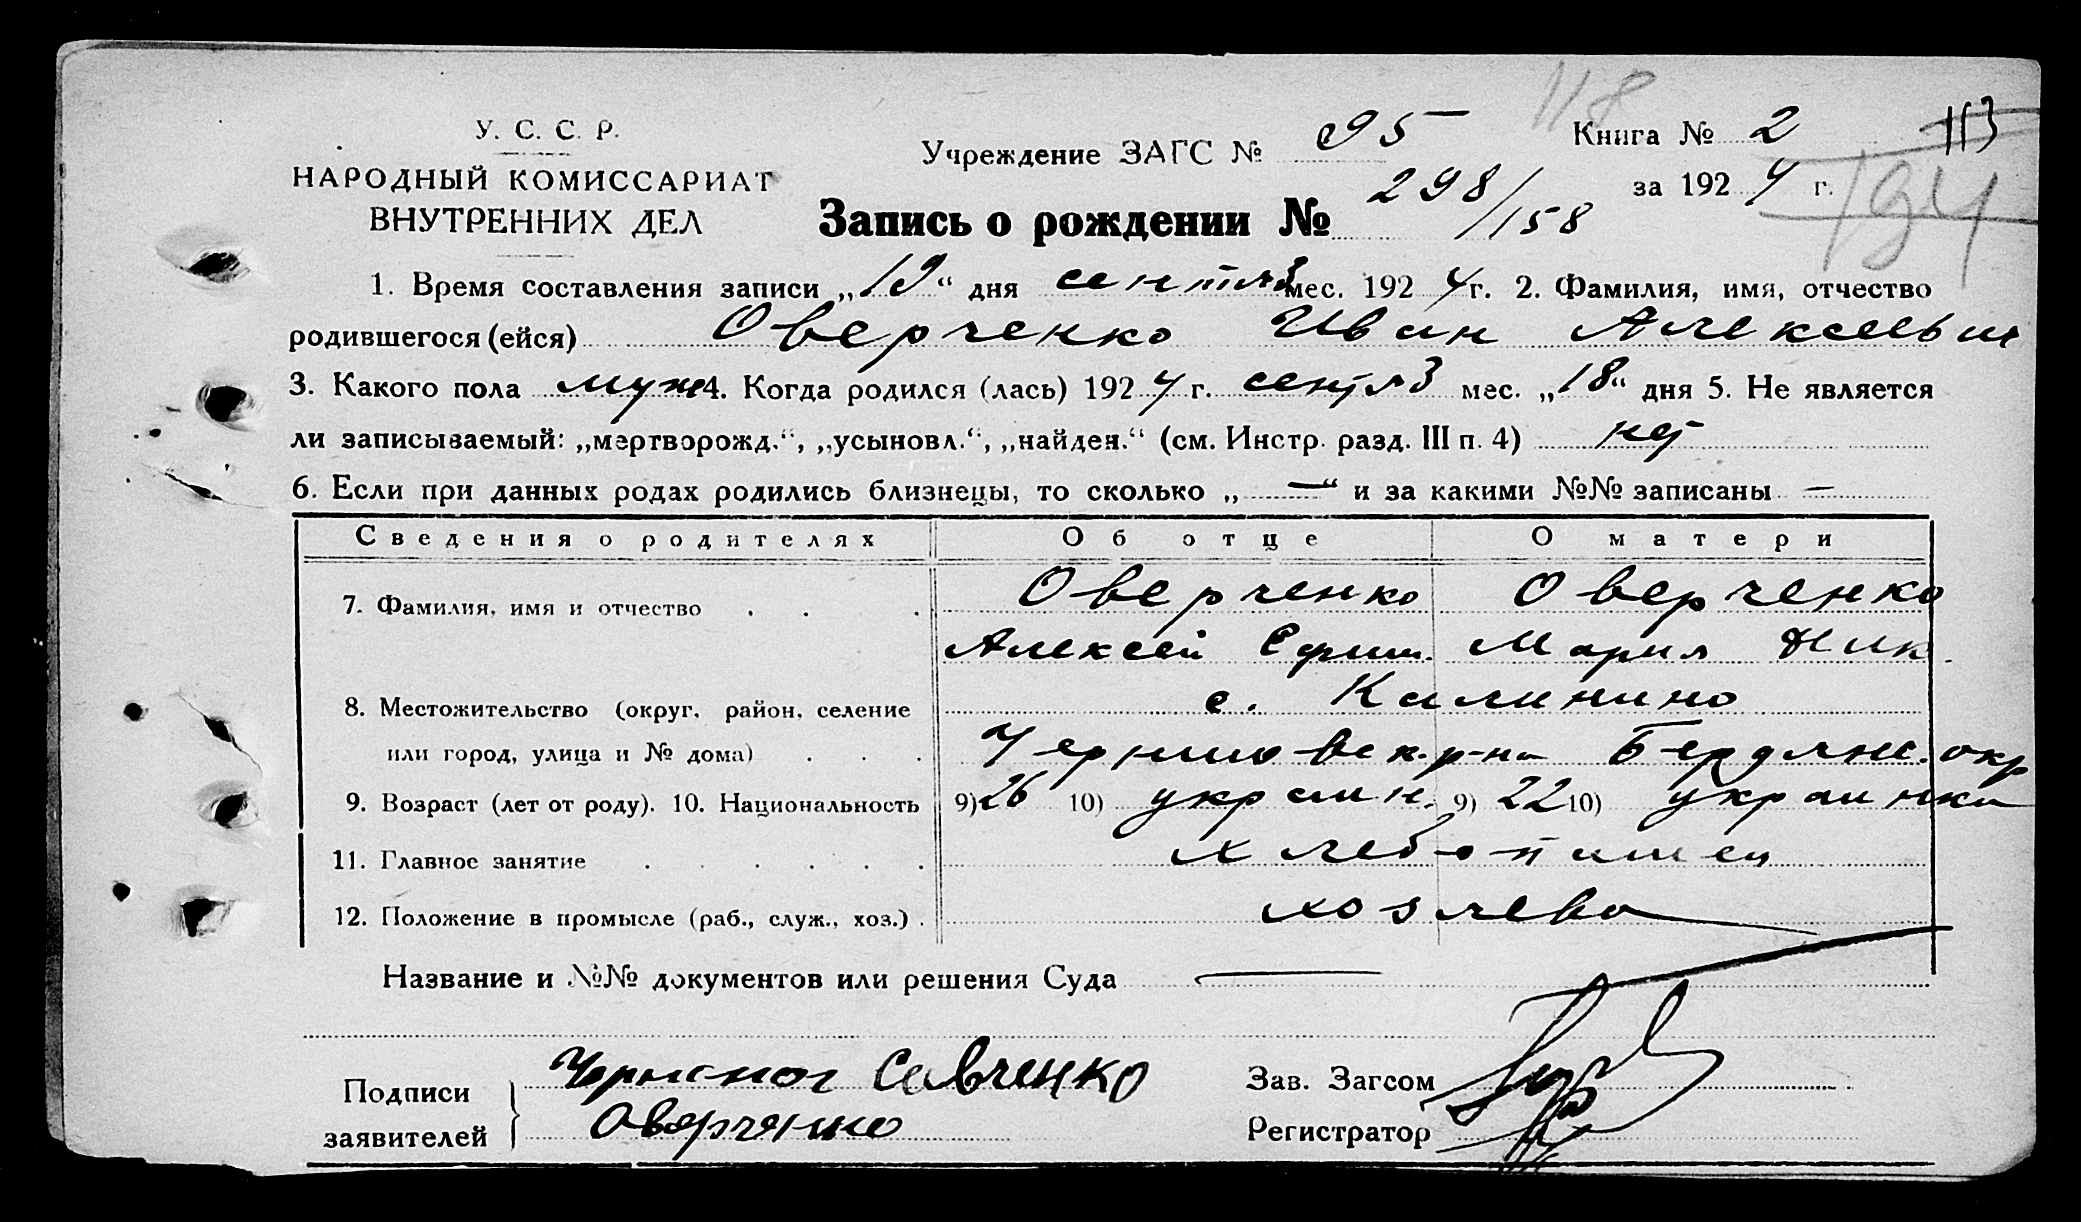 У. С. С. Р.
НАРОДНЫЙ КОМИССАРИАТ
ВНУТРЕННИХ ДЕЛ
118
Учреждение ЗАГС № 95
Книга № 2
113
за 1924 г.
194
Запись о рождении № 298/158
1. Время составления записи „19“ дня сентяб мес. 1924 г. 2. Фамилия, имя, отчество
родившегося (ейся) Оверченко Иван Алексеевич
3. Какого пола муж 4. Когда родился (лась) 1924 г. сентяб мес. „18“ дня 5. Не является
ли записываемый: „мертворожд.“, „усыновл.“, „найден.“ (см. Инстр. разд. III п. 4) нет
6. Если при данных родах родились близнецы, то сколько „—“ и за какими №№ записаны —
Сведения о родителях Об отце О матери
7. Фамилия, имя и отчество . . . Оверченко Оверченко
Алексей Ефим. Мария Ник.
8. Местожительство (округ, район, селение с. Калинино
или город, улица и № дома) . . . Черниговск. р-на Бердянс. окр
9. Возраст (лет от роду). 10. Национальность 9) 26 10) украин. 9) 22 10) украинка
11. Главное занятие . . . . . хлебопашец
12. Положение в промысле (раб., служ., хоз.) . хозяева
Название и №№ документов или решения Суда —
Подписи
заявителей
Савченко
Оверченко
Зав. Загсом
Регистратор